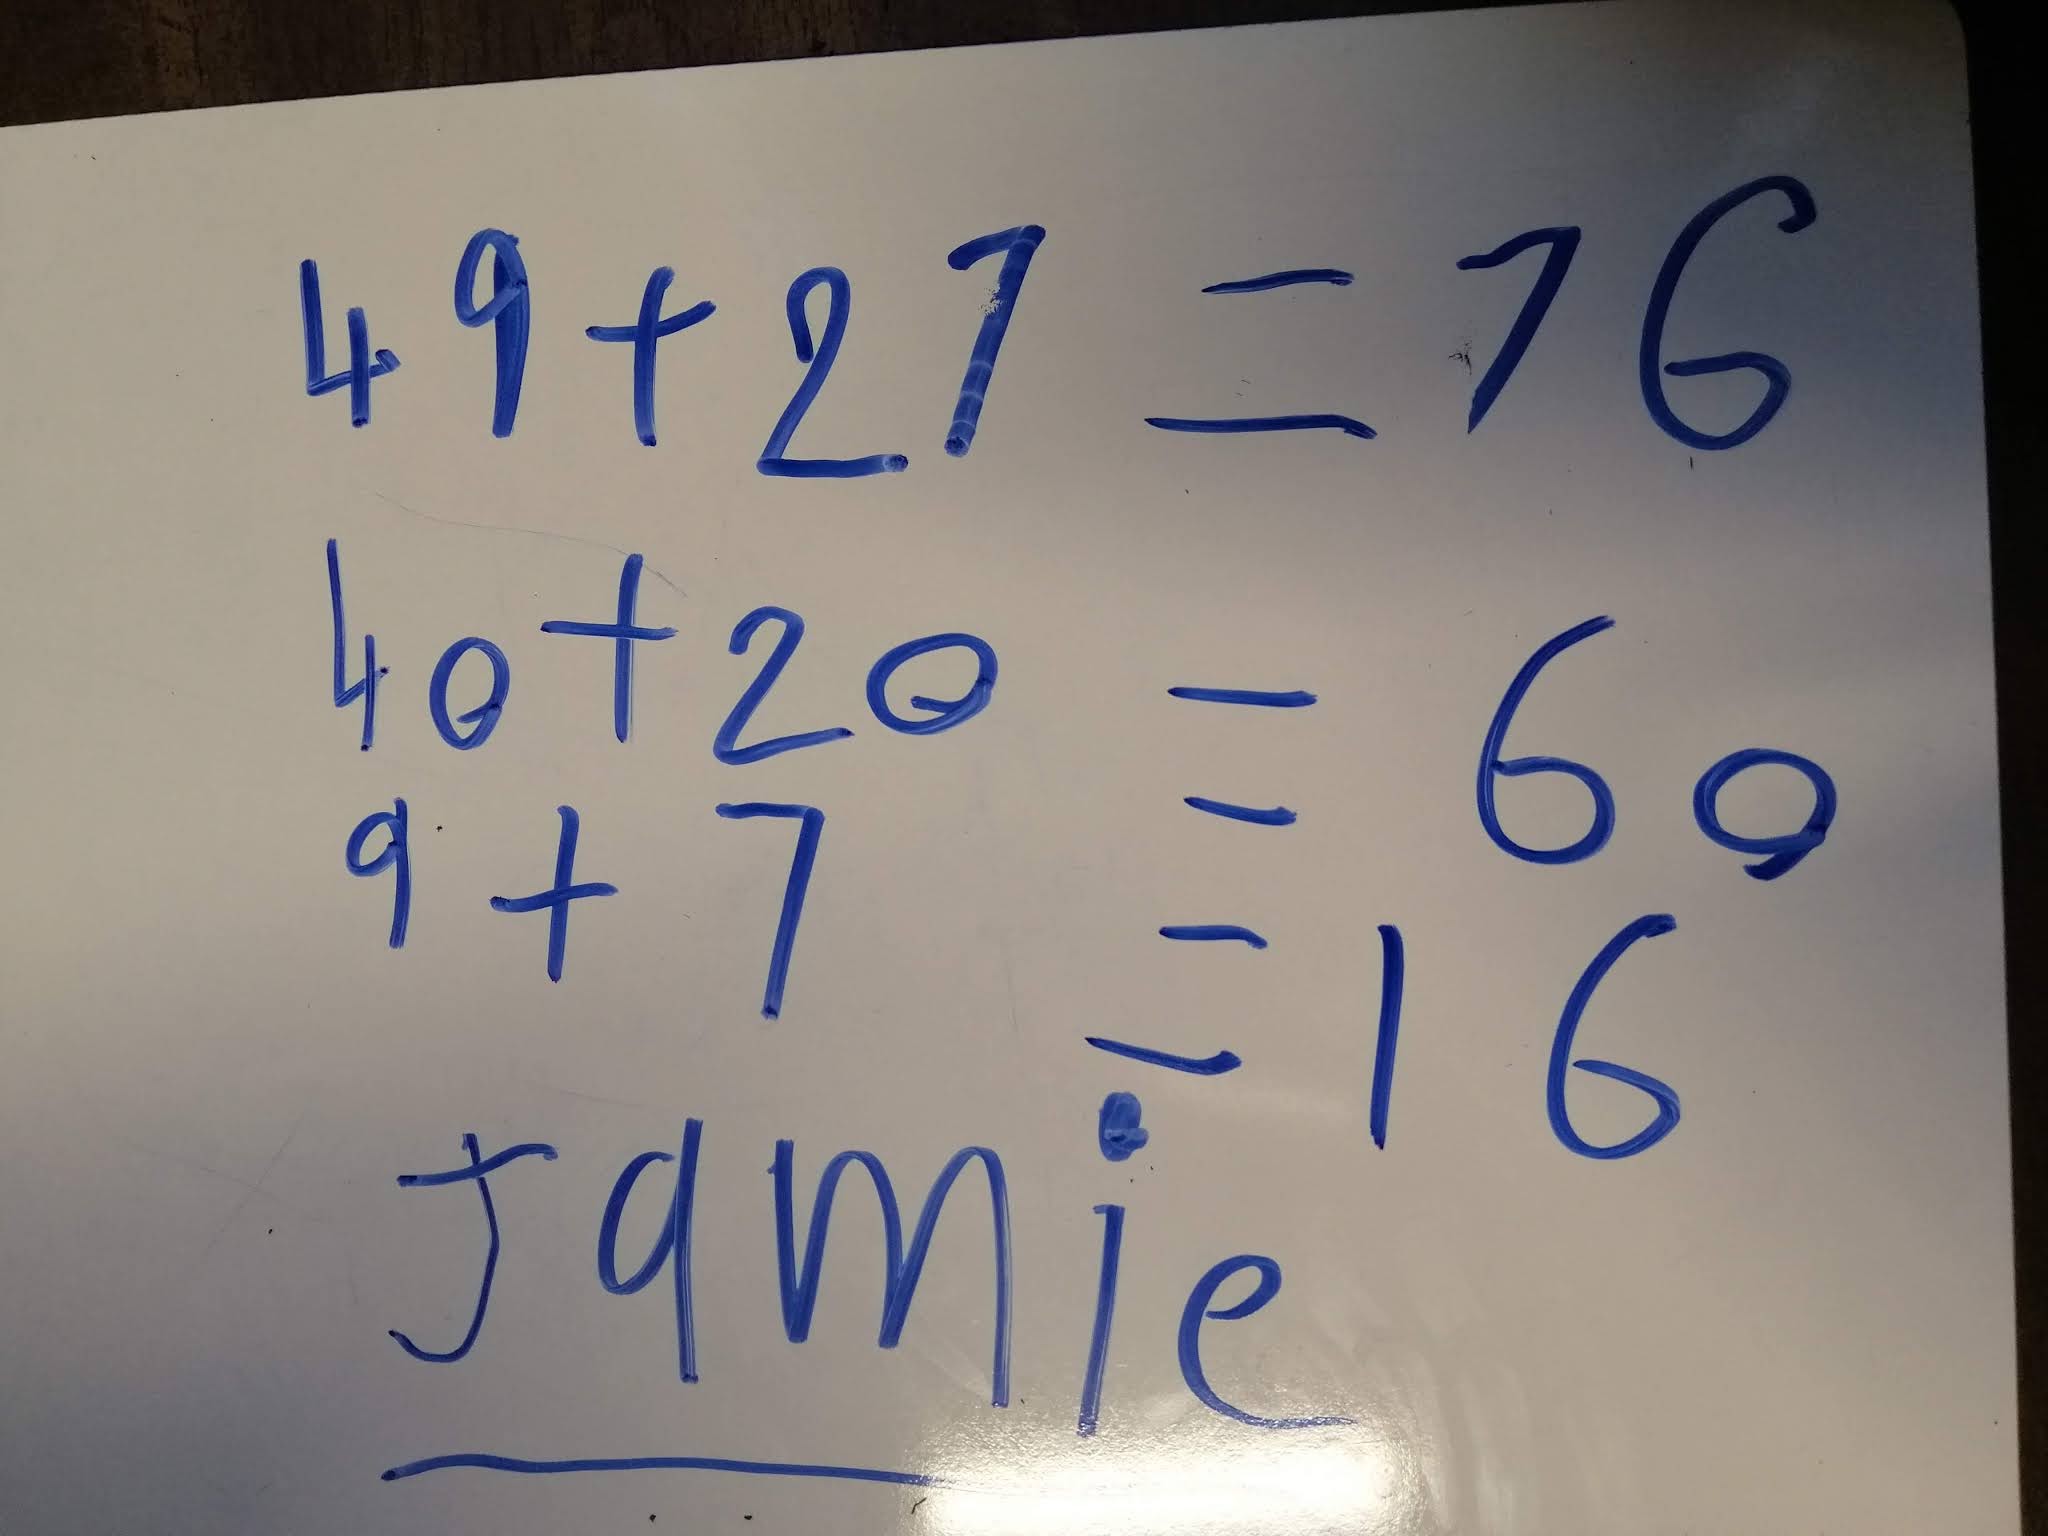 49+27=76
40+20=60
9+7=16
Jamie